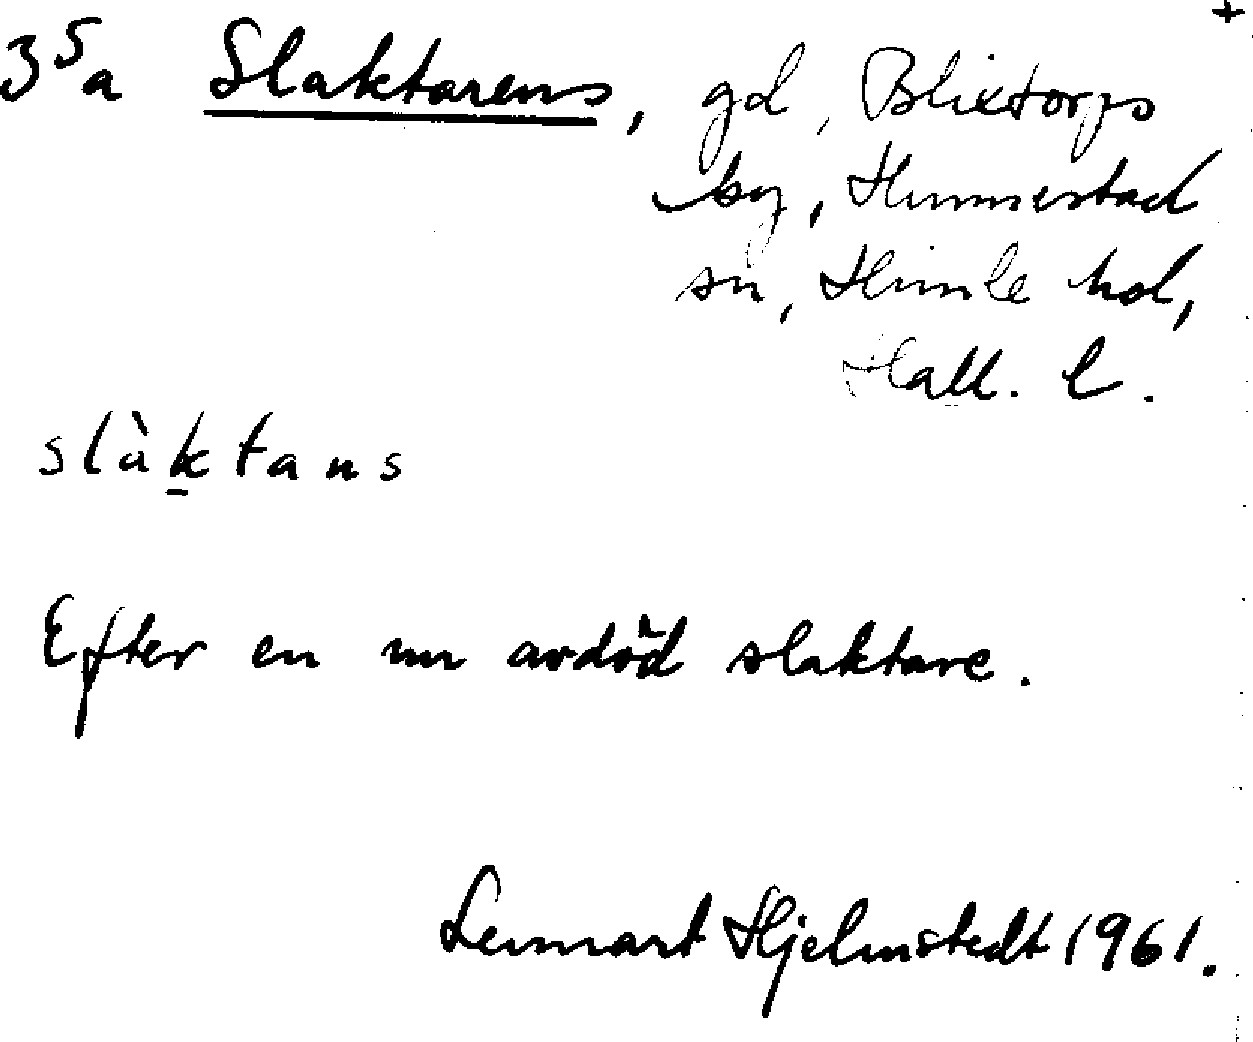 +
3⁵a Slaktarens, gd, Blixtorps
by, Hunnestad
sn, Himle hd,
Hall. l.
slàk̲tans
Efter en nu avdöd slaktare.
Lennart Hjelmstedt 1961.